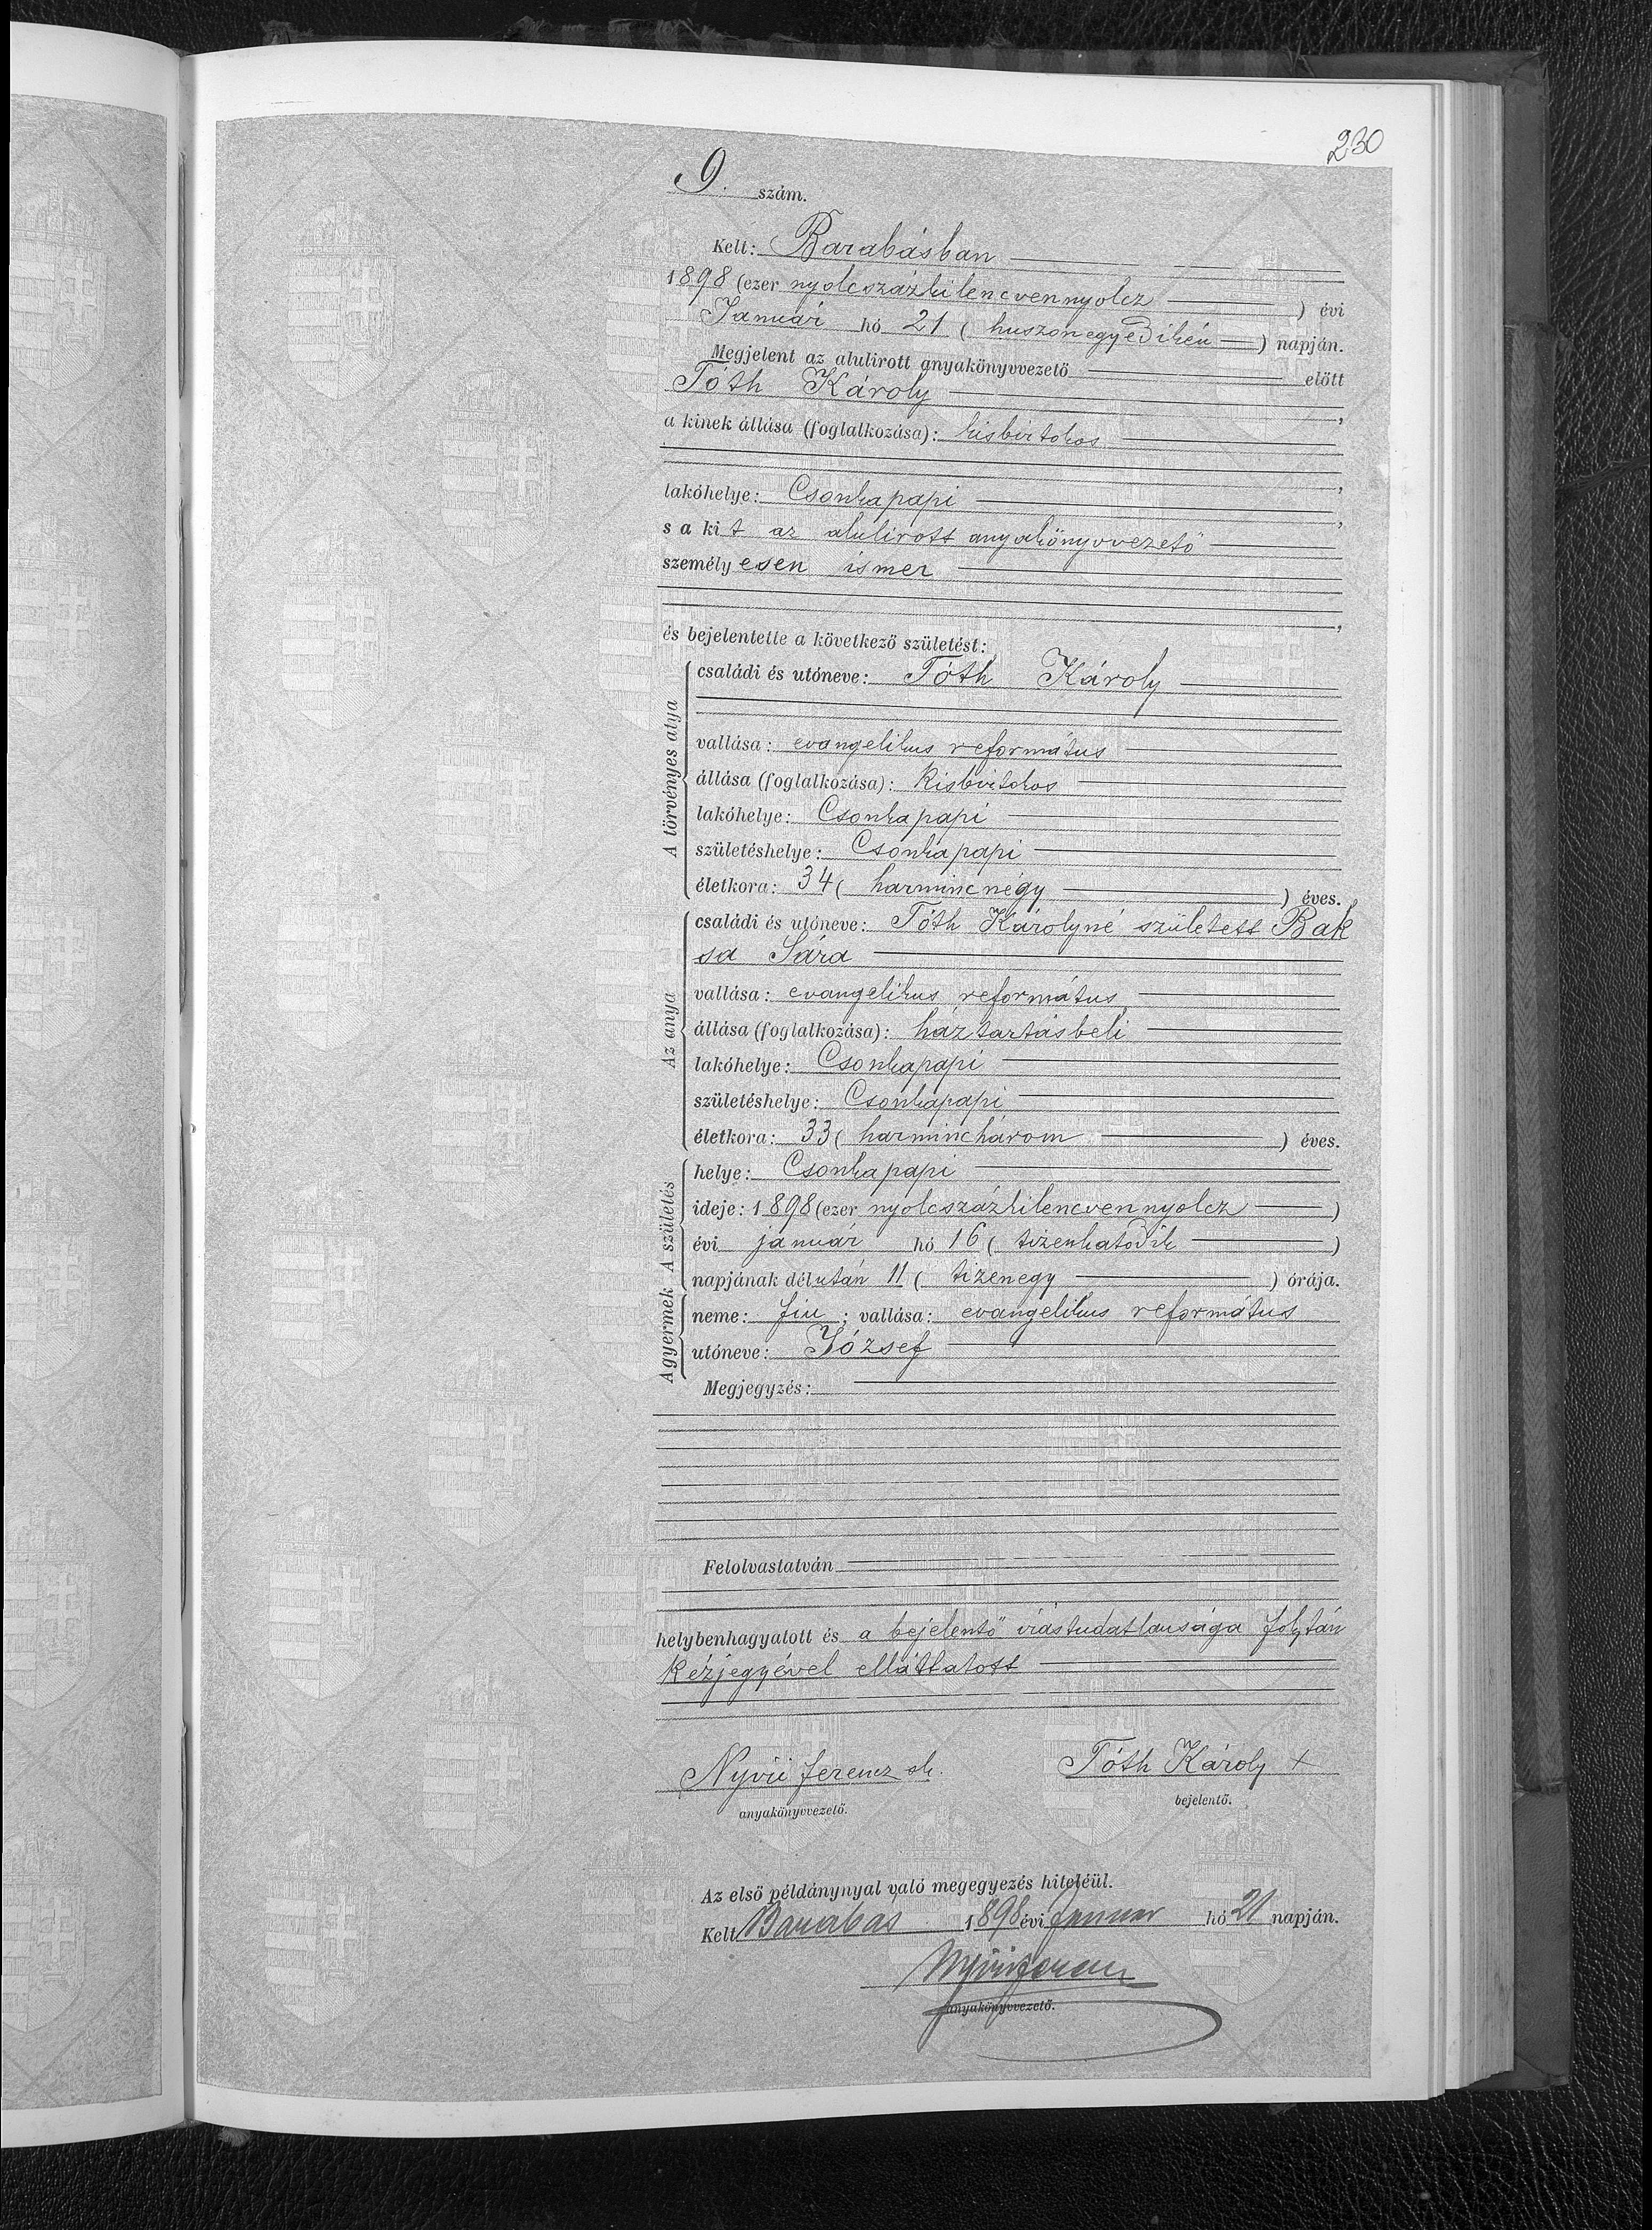 230
9. szám.
Kelt: Barabásban
1898 (ezer nyolcszázkilencvennyolcz ) évi
Január hó 21 ( huszonegyedikén ) napján.
Megjelent az alulirott anyakönyvvezető előtt
Tóth Károly ,
a kinek állása (foglalkozása): kisbirtokos
,
lakóhelye: Csonkapapi ,
s a kit az alulirott anyakönyvvezető
személyesen ismer
,
és bejelentette a következő születést:
A törvényes atya
családi és utóneve: Tóth Károly
vallása: evangelikus református
állása (foglalkozása): Kisbirtokos
lakóhelye: Csonkapapi
születéshelye: Csonkapapi
életkora: 34 ( harmincnégy ) éves.
Az anya
családi és utóneve: Tóth Károlyné született Bak
sa Sára
vallása: evangelikus református
állása (foglalkozása): háztartásbeli
lakóhelye: Csonkapapi
születéshelye: Csonkapapi
életkora: 33 ( harminchárom ) éves.
A születés
helye: Csonkapapi
ideje: 1898 (ezer nyolcszázkilencvennyolcz )
évi január hó 16 ( tizenhatodik )
napjának délután 11 ( tizenegy ) órája.
A gyermek
neme: fiu ; vallása: evangelikus református
utóneve: József
Megjegyzés:
Felolvastatván
helybenhagyatott és a bejelentő irástudatlansága folytán
kézjegyével elláttatott
Nyiri Ferencz sk. Tóth Károly +
anyakönyvvezető. bejelentő.
Az első példánynyal való megegyezés hiteléül.
Kelt Barabás 1898 évi Januar hó 21 napján.
Nyiri Ferencz
anyakönyvvezető.